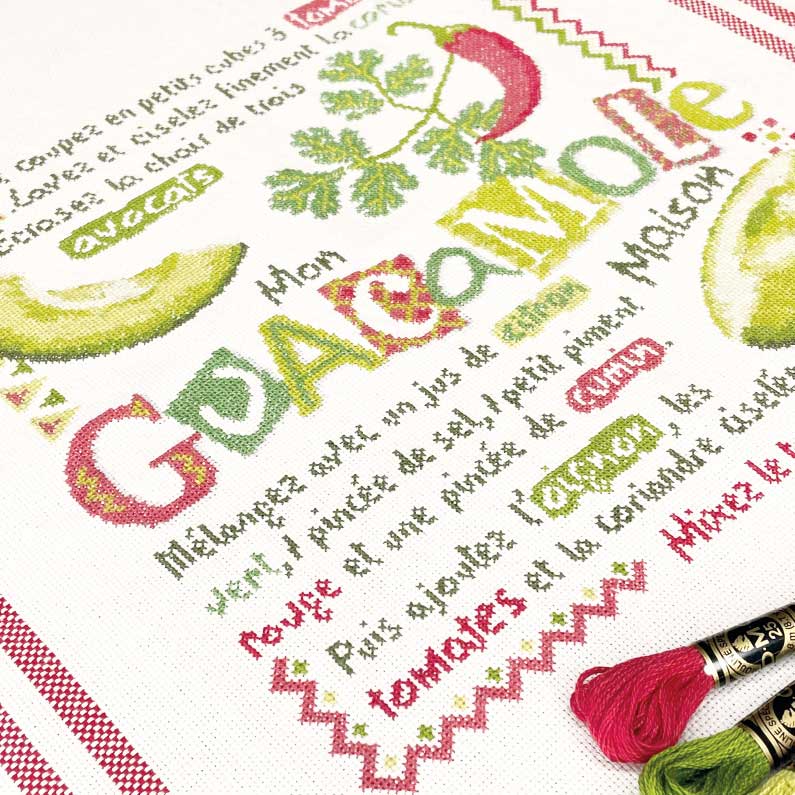 coupez en petits cubes 3 tom
Lavez et ciselez finement la cori
écrasez la chair de trois
avocats
Mon
GUACaMOLe
Maison
Mélangez avec un jus de citron
vert, 1 pincée de sel, 1 petit piment
rouge et une pincée de cumin.
Puis ajoutez l'oignon, les
tomates et la coriandre ciselée
Mixez le t
D·M
25